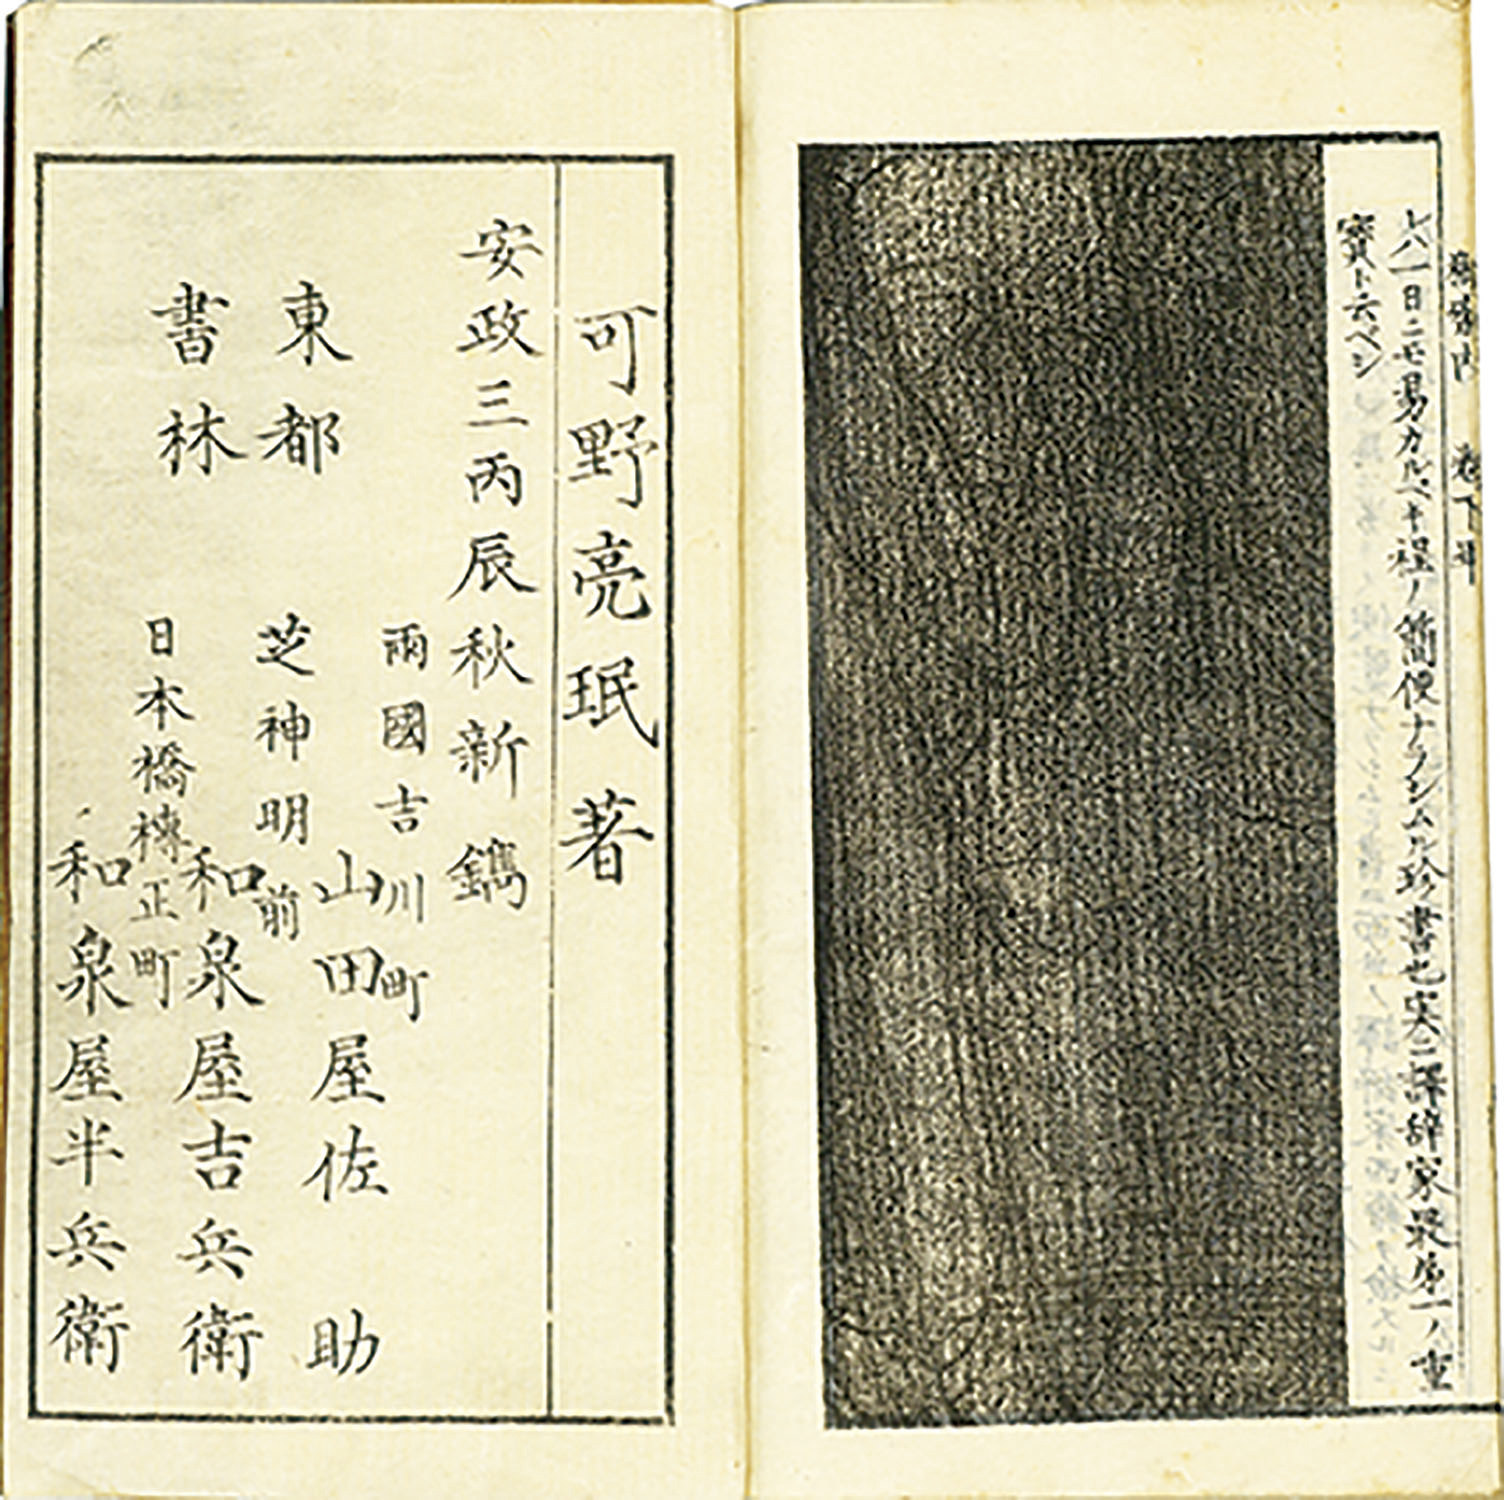 ルハ一日ニモ易カルベキ程ノ簡便ナラシムル珍書也実ニ譯辞家最第一ノ重
寳ト云ベシ
可野亮珉著
安政三丙辰秋新鐫
東都
書林
兩國吉川町
山田屋佐助
芝神明前
和泉屋吉兵衛
日本橋槫正町
和泉屋半兵衛